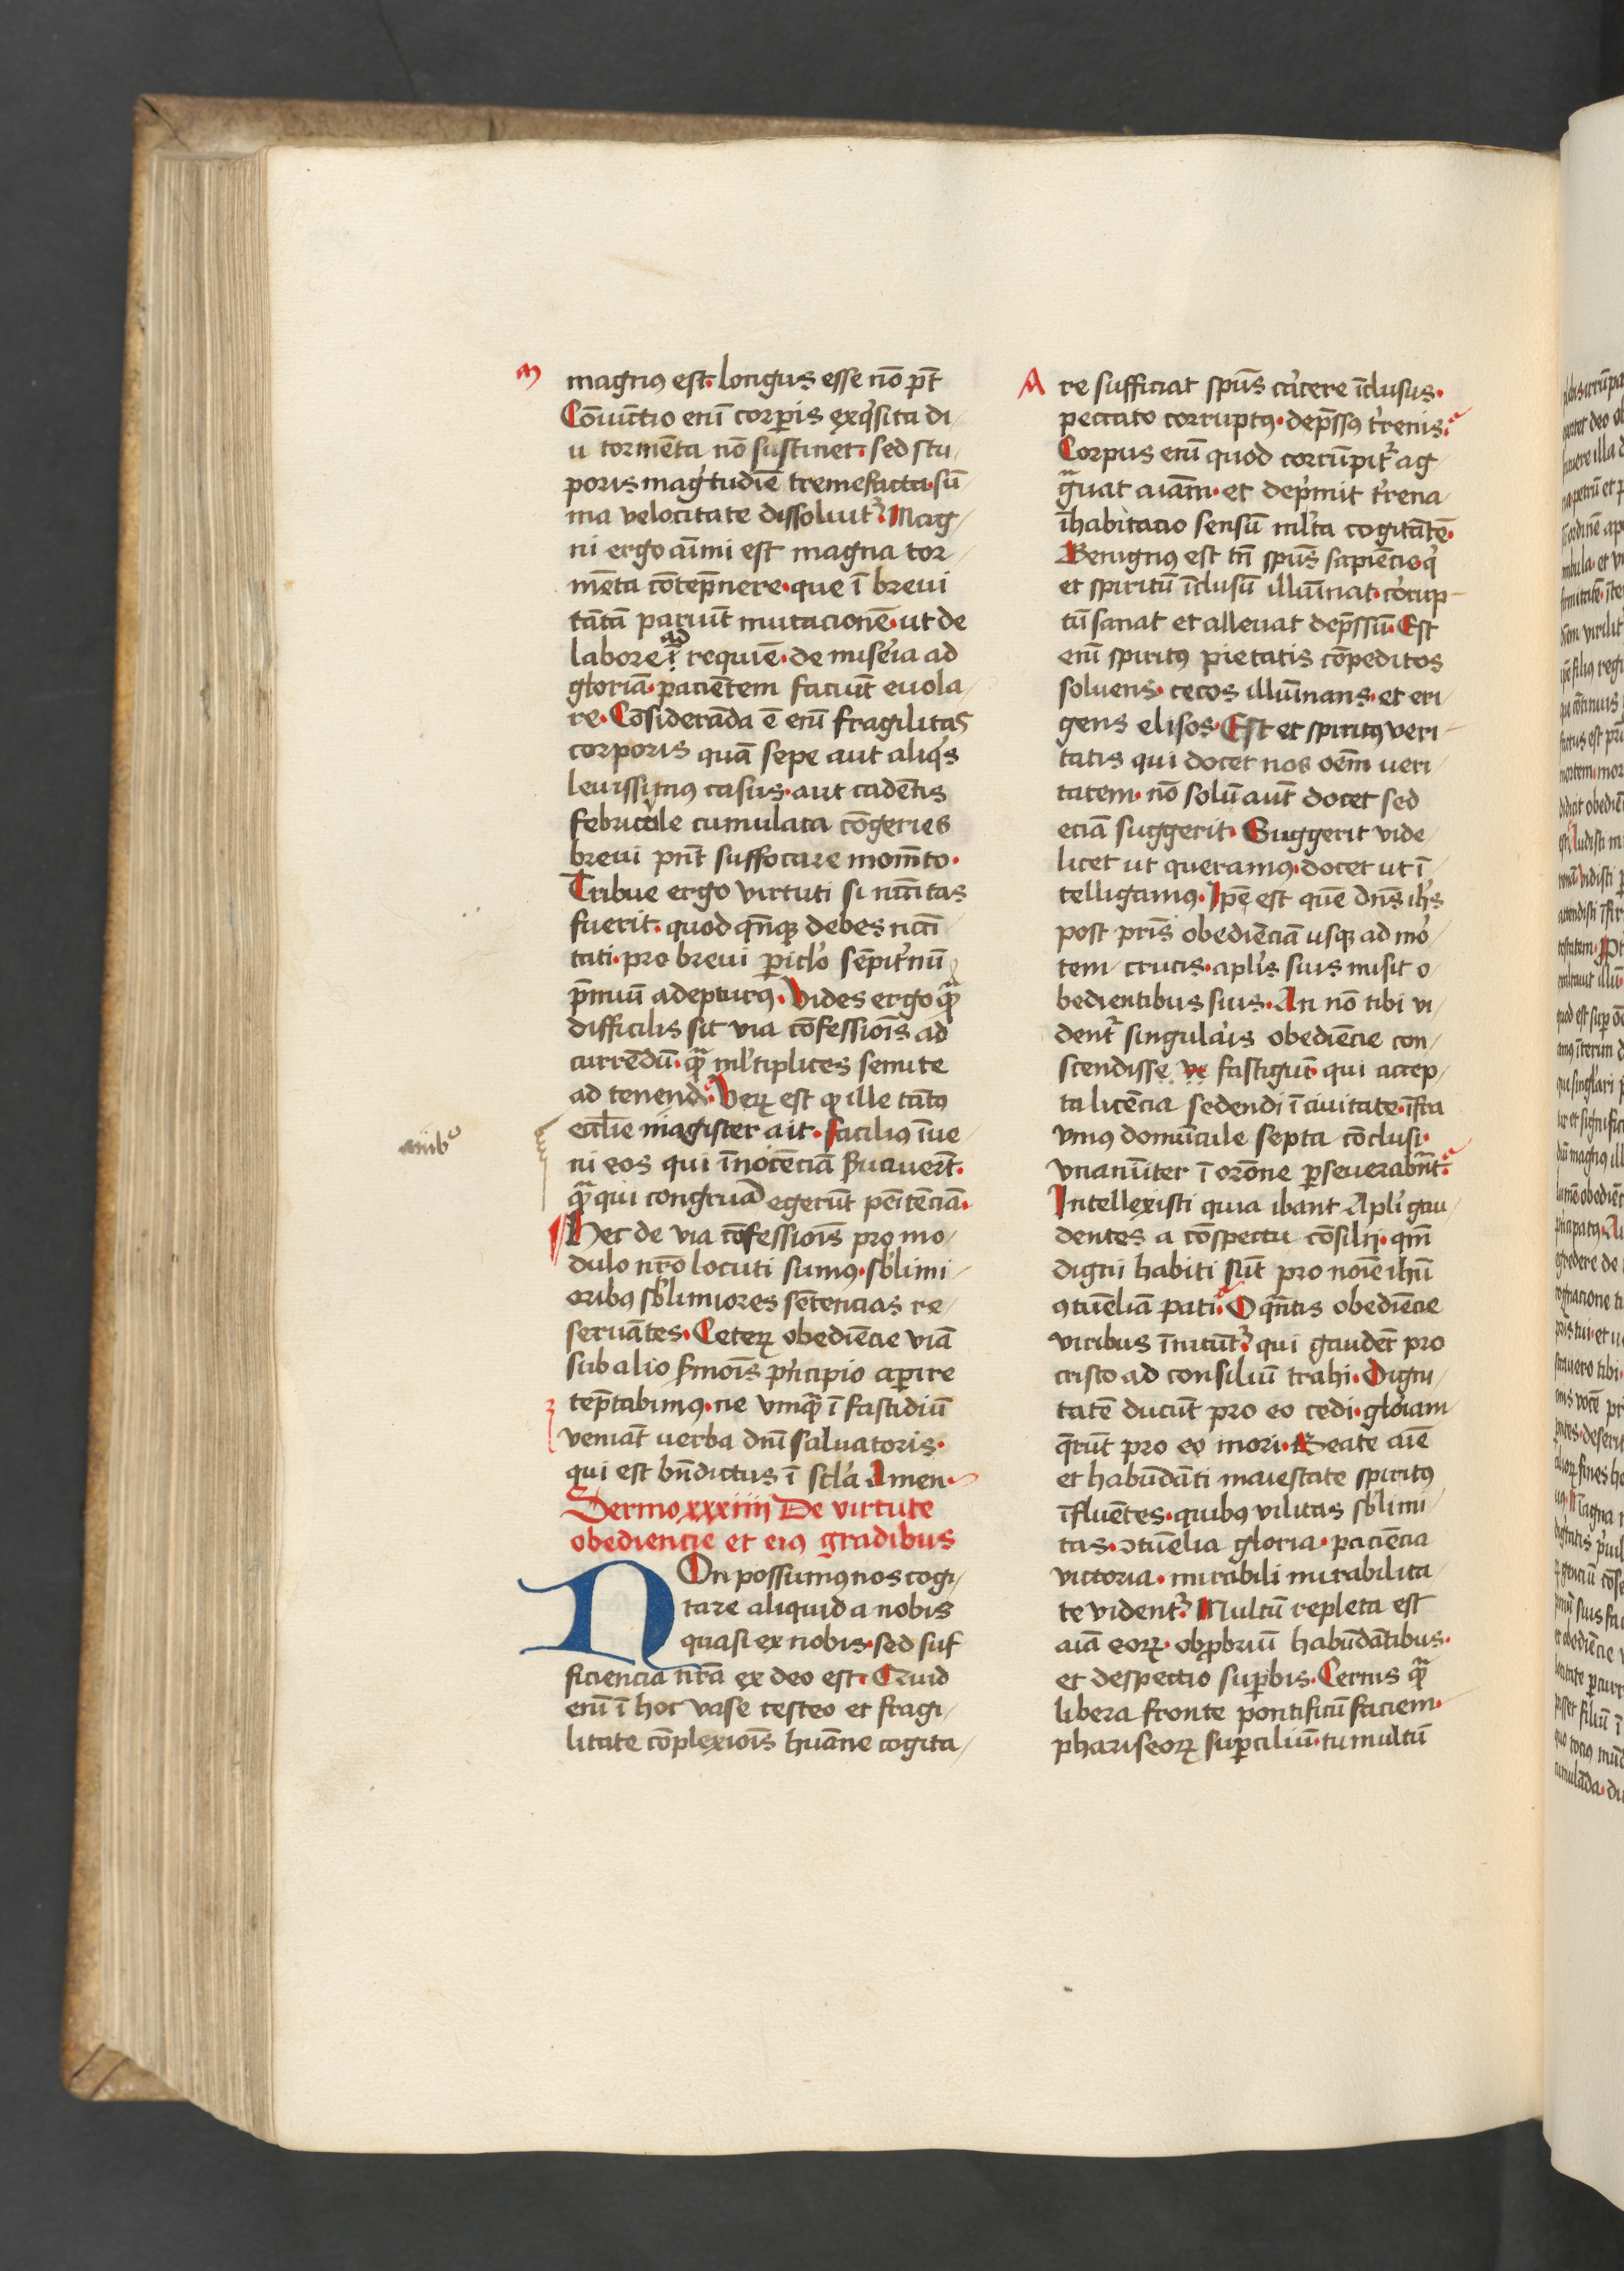 m
magnus est. longus esse nō pt̄
Cōiūctio enī corꝑis exqͥsita di
u tormēta nō sustinet. sed stu
poris magͥtudīe tremefacta. sū
ma velocitate dissoluitᷣ. Mag
ni ergo aīmi est magna tor
mēta cōtēpnere. que ī breui
tātā pariūt mutacionē. ut de
labore ad requiē. de miseͥia ad
gloriā. paciētem faciūt euola
re. Cōsiderāda ē enī fragilitas
corporis quā sepe aut aliqͥs
leuissimꝰ casus. aut cadētis
febricule cumulata cōgeries
breui pn̄t suffocare momēto.
Tribue ergo virtuti si nccītas
fuerit. quod qn̄qꝫ debes ncci
tati. pro breui ꝑiclo sēpitᷣnū
p̄miū adepturꝰ. Vides ergo qᷓ
difficilis sit via cōfessiōis ad
currēdū. qᷓ ml̓tiplices semite
ad tenend. Verꝝ est qꝫ ille tātꝰ
eccl̄ie magister ait. facilius īue
ni eos qui īnocēciā s̄uauerūt.
qᷓ qui congruā egerūt pēitēciā.
Hec de via cōfessiōis pro mo
dulo nr̄o locuti sumꝰ. sb̓limi
oribꝰ sb̓limiores sētencias re
seruātes. Ceterꝝ obediēcie viā
sub alio s̄mōis pͥncipio aꝑire
tēptabimꝰ. ne vmqᷓ ī fastidiū
veniāt uerba dnī saluatoris.
qui est bn̄dictus ī scl̓a Amen.
Sermo xxxiiii De virtute
obediencie et eiꝰ gradibus
NOn possumꝰ nos cogi
tare aliquid a nobis
quasi ex nobis. sed suf
ficiencia nr̄a ex deo est. Quid
enī ī hoc vase testeo et fragi
litate cōplexiōis huāne cogita
ambº
A
re sufficiat spūs carcere īclusus.
peccato corruptꝰ. dep̄ssꝰ tᷣrenis.
Corpus enī quod corrūpitᷣ ag
gᷓuat aīam. et depͥmit tᷣrena
īhabitacio sensū ml̓ta cogitātē.
Benignꝰ est tn̄ spūs sapiēcie. qͥ
et spiritū īclusū illūinat. corup
tū sanat et alleuat dep̄ssū. Est
enī spiritꝰ pietatis cōpeditos
soluens. cecos illūinans. et eri
gens elisos. Est et spiritꝰ veri
tatis qui docet nos oēm ueri
tatem. nō solū aūt docet sed
eciā suggerit. Suggerit vide
licet ut queramꝰ. docet ut ī
telligamꝰ. Ip̄e est quē dn̄s ihs̄
post pris̄ obediēciā usqꝫ ad moͬ
tem crucis. aplīs suis misit o
bedientibus suis. An nō tibi vi
dentᷣ singularis obediēcie con
scendisse fastigiū. qui accep
ta licēcia sedendi ī ciuitate. īfra
vniꝰ domūcule septa cōclusi.
vnanīiter ī orōne ꝑseuerabn̄t.
Intellexisti quia ibant Apli gau
dentes a cōspectu cōsilij. qm̄
digni habiti sūt pro noīe ihū
ꝯtūeliā pati. O qn̄tis obediēcie
viribus īnitūtᷣ. qui gaudēt pro
cristo ad consiliū trahi. Digni
tatē ducūt pro eo cedi. gloͥiam
qͥrūt pro eo mori. Beate aīe
et habūdāti maiestate spiritꝰ
īfluētes. quibꝰ vilitas sb̓limi
tas. ꝯtūelia gloria. paciēcia
victoria. mirabili mirabilita
te videntᷣ. Multū repleta est
aīa eorꝝ. obꝓbriū habūdātibus.
et despectio suꝑbis. Cernis qᷓ
libera fronte pontificū faciem.
phariseorꝝ suꝑciliū. tumultū